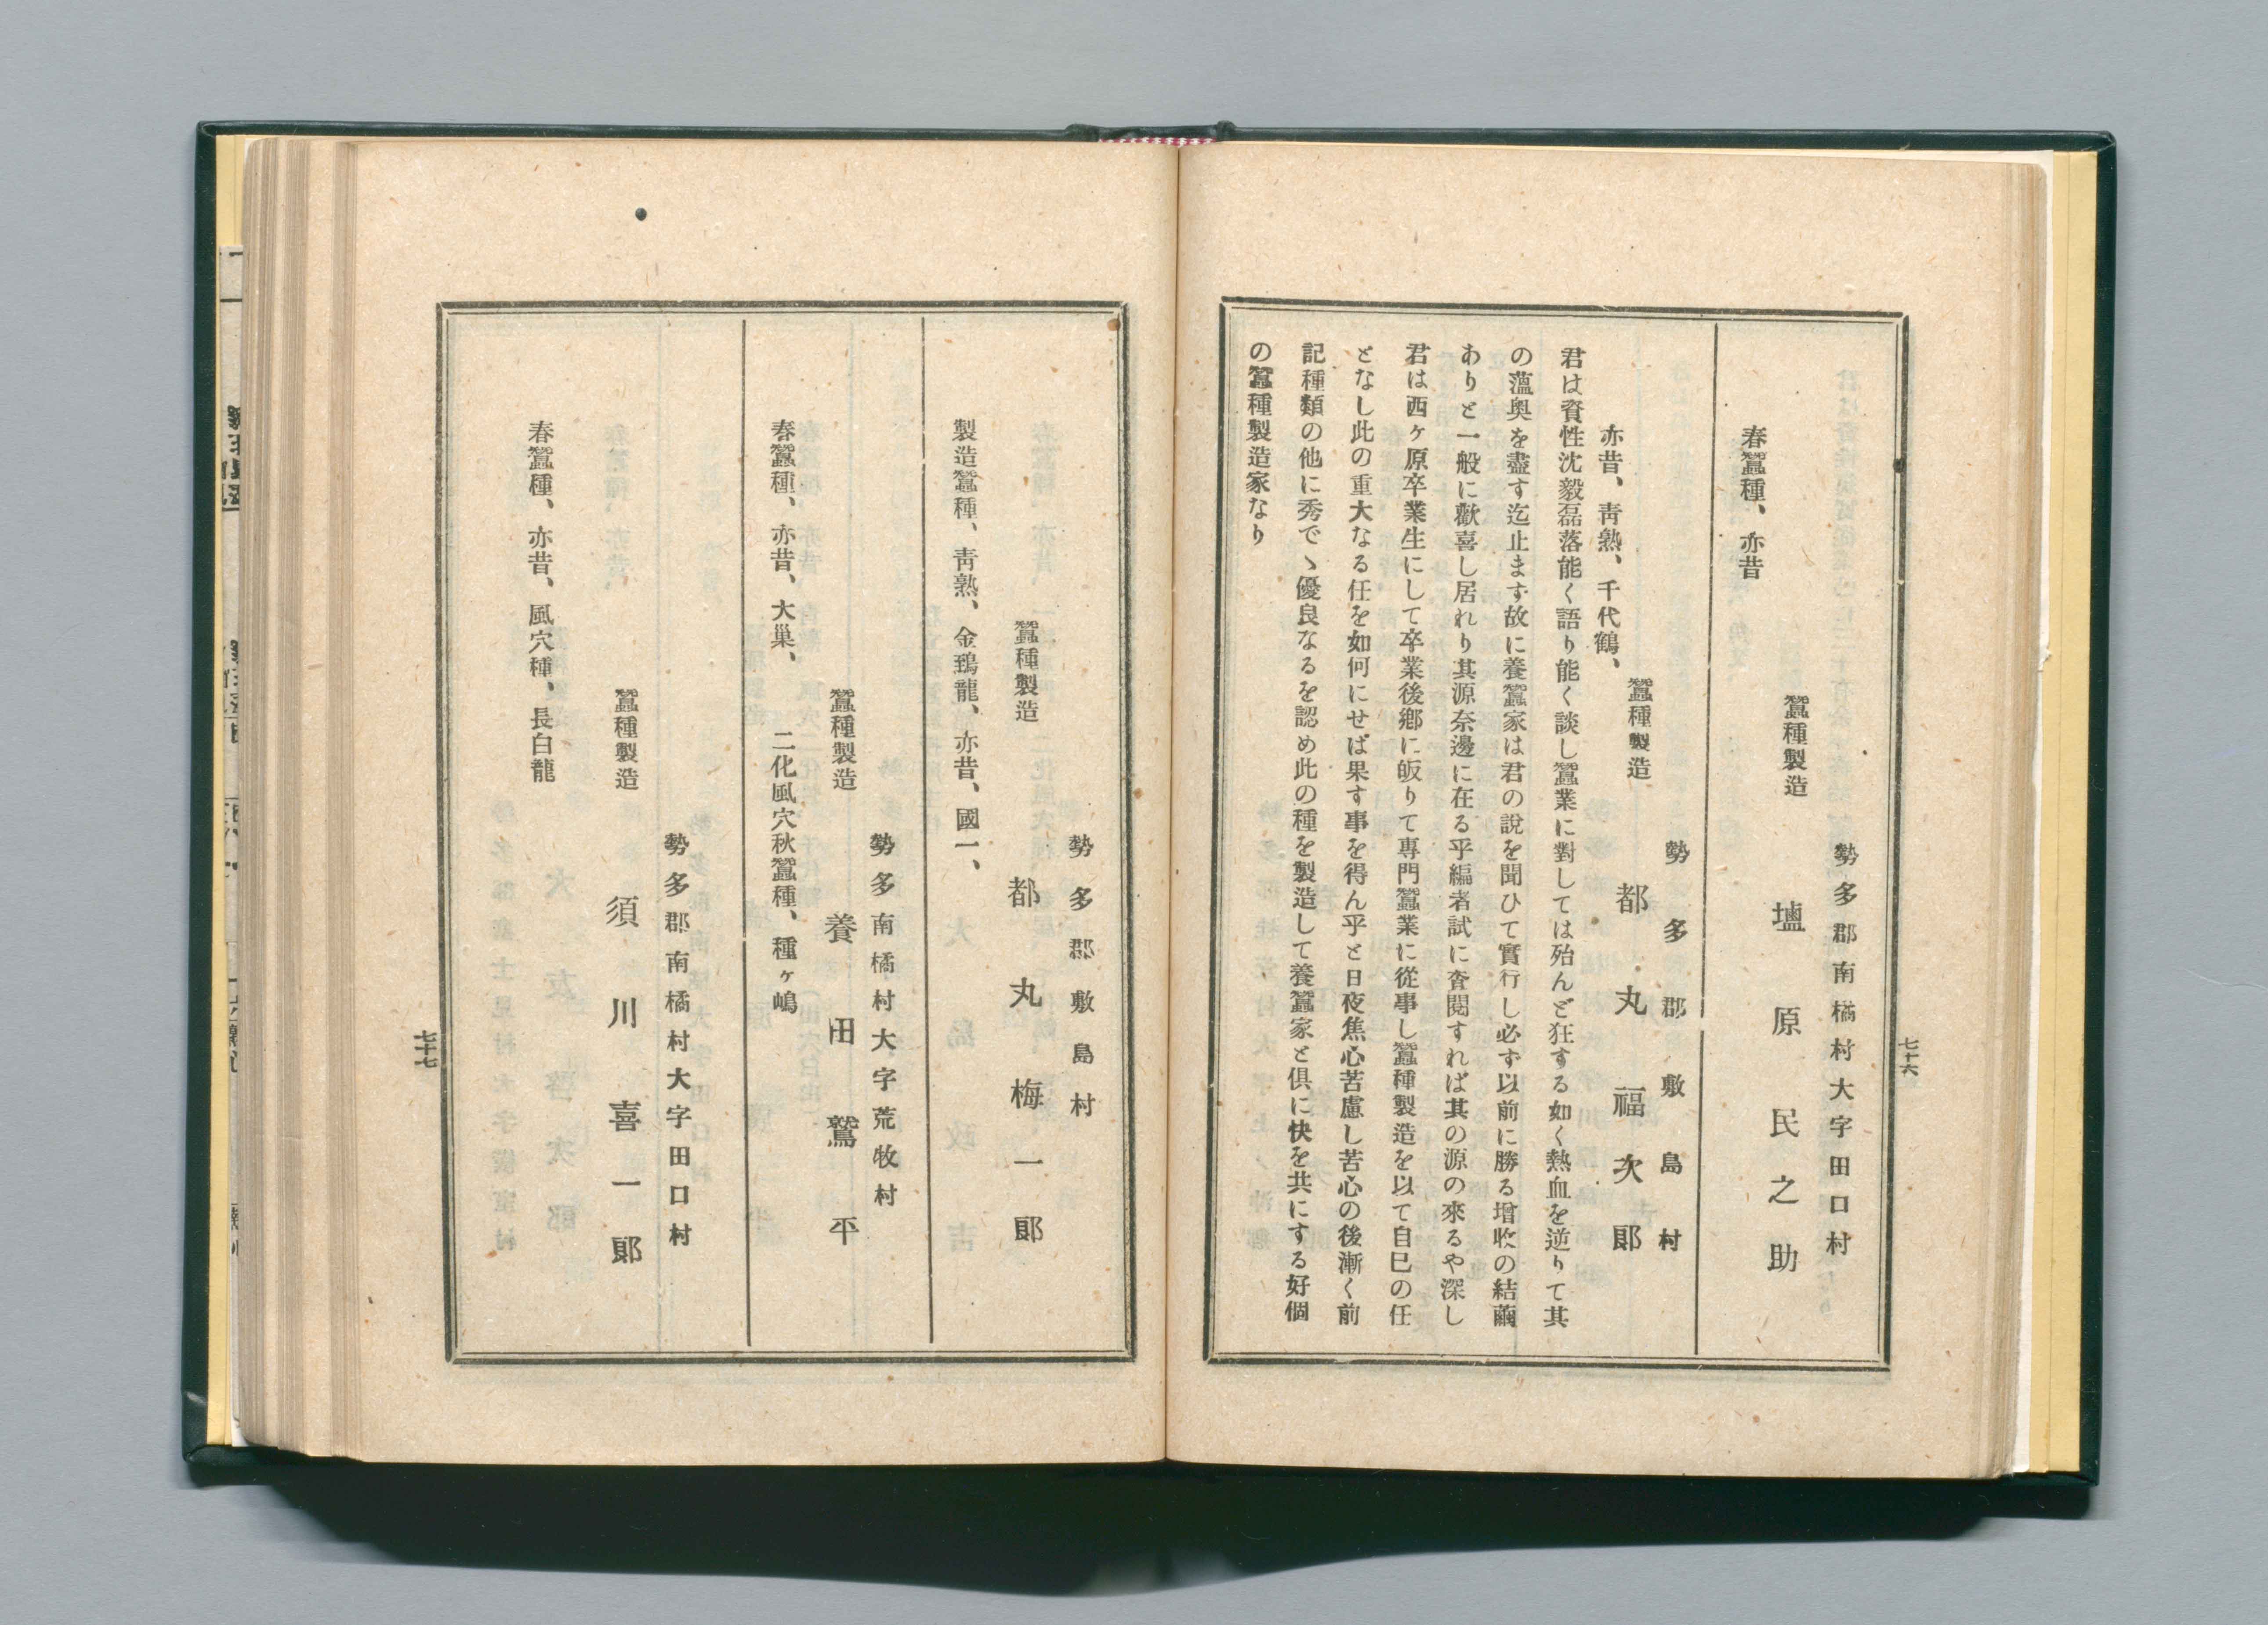 勢多郡南橘村大字田口村
蠶種製造　壗原民之助
春蠶種、亦昔
勢多郡敷島村
蠶種製造　都丸福次郞
亦昔、靑熟、千代鶴、
君は資性沈毅磊落能く語り能く談し蠶業に對しては殆んど狂する如く熱血を逆りて其
の薀奧を盡す迄止ます故に養蠶家は君の說を聞ひて實行し必す以前に勝る增收の結繭
ありと一般に歡喜し居れり其源奈邊に在る乎編者試に査閱すれば其の源の來るや深し
君は西ヶ原卒業生にして卒業後鄕に皈りて專門蠶業に從事し蠶種製造を以て自巳の任
となし此の重大なる任を如何にせば果す事を得ん乎と日夜焦心苦慮し苦心の後漸く前
記種類の他に秀でゝ優良なるを認め此の種を製造して養蠶家と俱に快を共にする好個
の蠶種製造家なり
七十六
勢多郡敷島村
蠶種製造　都丸梅一郞
製造蠶種、靑熟、金鵄龍、亦昔、國一、
勢多南橘村大字荒牧村
蠶種製造　養田鷲平
春蠶種、亦昔、大巢、　二化風穴秋蠶種、種ヶ嶋
勢多郡南橘村大字田口村
蠶種製造　須川喜一郞
春蠶種、亦昔、風穴種、長白龍
七十七